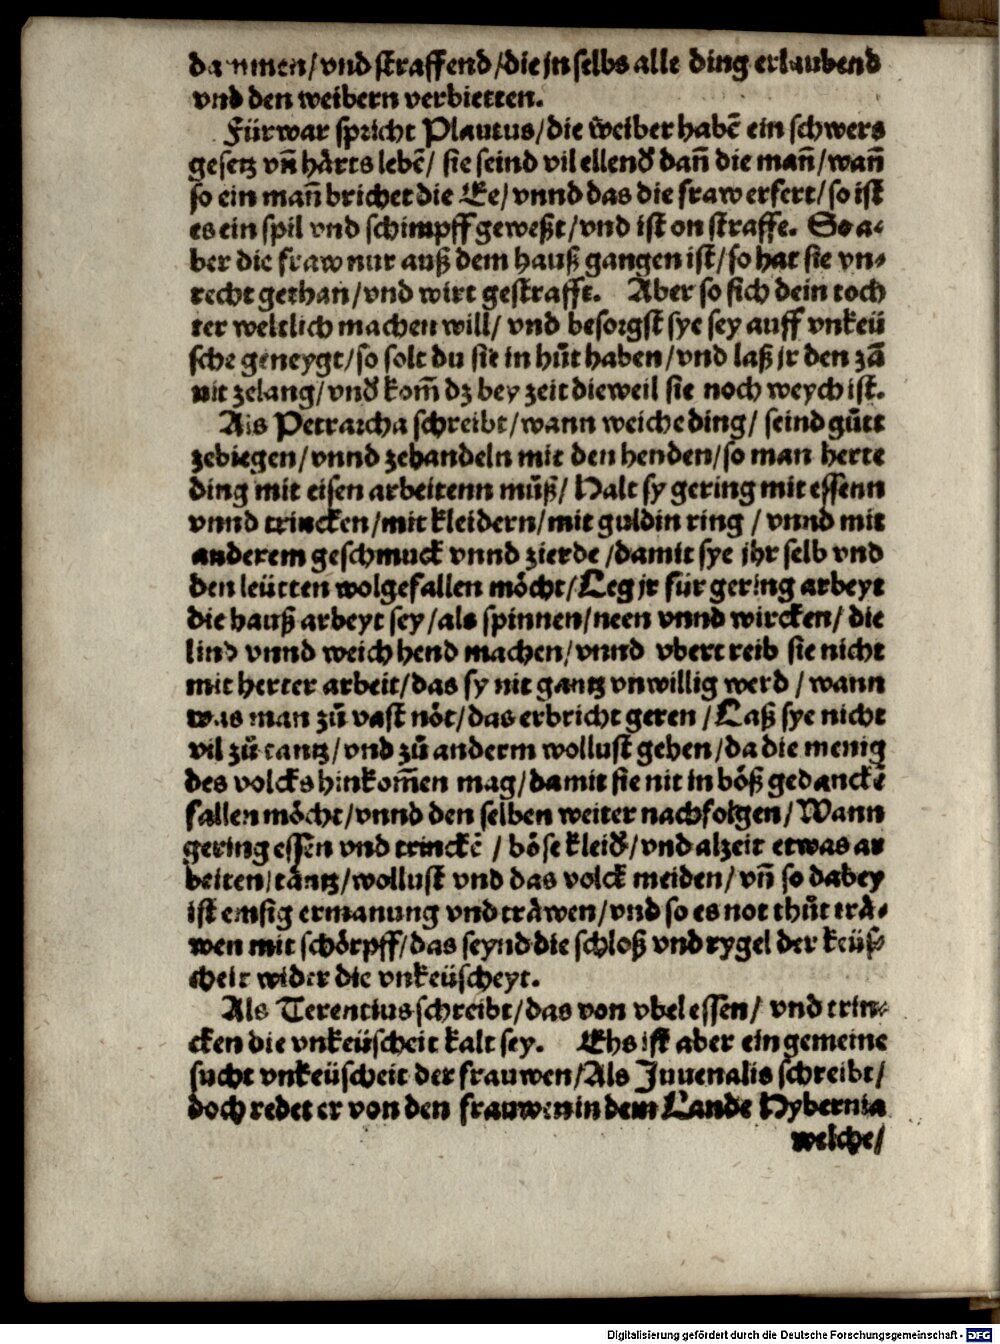 dammen/vnd straffend/die jn selbs alle ding erlaubend
vnd den weibern verbietten.
Fürwar spricht Plautus/die weiber habē ein schwers
gesetz vn̄ hårts lebē/ sie seind vil ellend dan̄ die man̄/wan̄
so ein man̄ brichet die Ee/ vnnd das die fraw erfert/so ist
es ein spil vnd schimpff geweßt/vnd ist on straffe. So a⸗
ber die fraw nur auß dem hauß gangen ist/so hat sie vn⸗
recht gethan/vnd wirt gestrafft. Aber so sich dein toch
ter weltlich machen will/ vnd besorgst sye sey auff vnkeü
sche geneygt/so solt du sie in hůt haben/vnd laß jr den zā
nit zelang/vnd kom̄ dz bey zeit dieweil sie noch weych ist.
Als Petrarcha schreibt/wann weiche ding/ seind gůtt
zebiegen/vnnd zehandeln mit den henden/so man herte
ding mit eisen arbeitenn můß/ Halt sy gering mit essenn
vnnd trincken/mit kleidern/mit guldin ring / vnnd mit
anderem geschmuck vnnd zierde /damit sye jhr selb vnd
den leütten wolgefallen möcht/Leg jr für gering arbeyt
die hauß arbeyt sey/als spinnen/neen vnnd wircken/ die
lind vnnd weich hend machen/vnnd vbertreib sie nicht
mit herter arbeit/das sy nit gantz vnwillig werd / wann
was man zů vast nöt/das erbricht geren /Laß sye nicht
vil zů tantz/vnd zů anderm wollust gehen/da die menig
des volcks hinkom̄en mag/damit sie nit in böß gedanckē
fallen möcht/vnnd den selben weiter nachfolgen/Wann
gering essen vnd trinckē /böse kleid/vnd alzeit etwas ar
beiten/tåntz/wollust vnd das volck meiden/vn̄ so dabey
ist emsig ermanung vnd tråwen/vnd so es not thůt trå⸗
wen mit schörpff/das seynd die schloß vnd rygel der keüs⸗
cheit wider die vnkeüscheyt.
Als Terentius schreibt/das von vbel essen/ vnd trin⸗
cken die vnkeüscheit kalt sey. Ehs ist aber ein gemeine
sucht vnkeüscheit der frauwen/Als Juuenalis schreibt/
doch redet er von den frauwen in dem Lande Hybernia
welche/
Digitalisierung gefördert durch die Deutsche Forschungsgemeinschaft - DFG